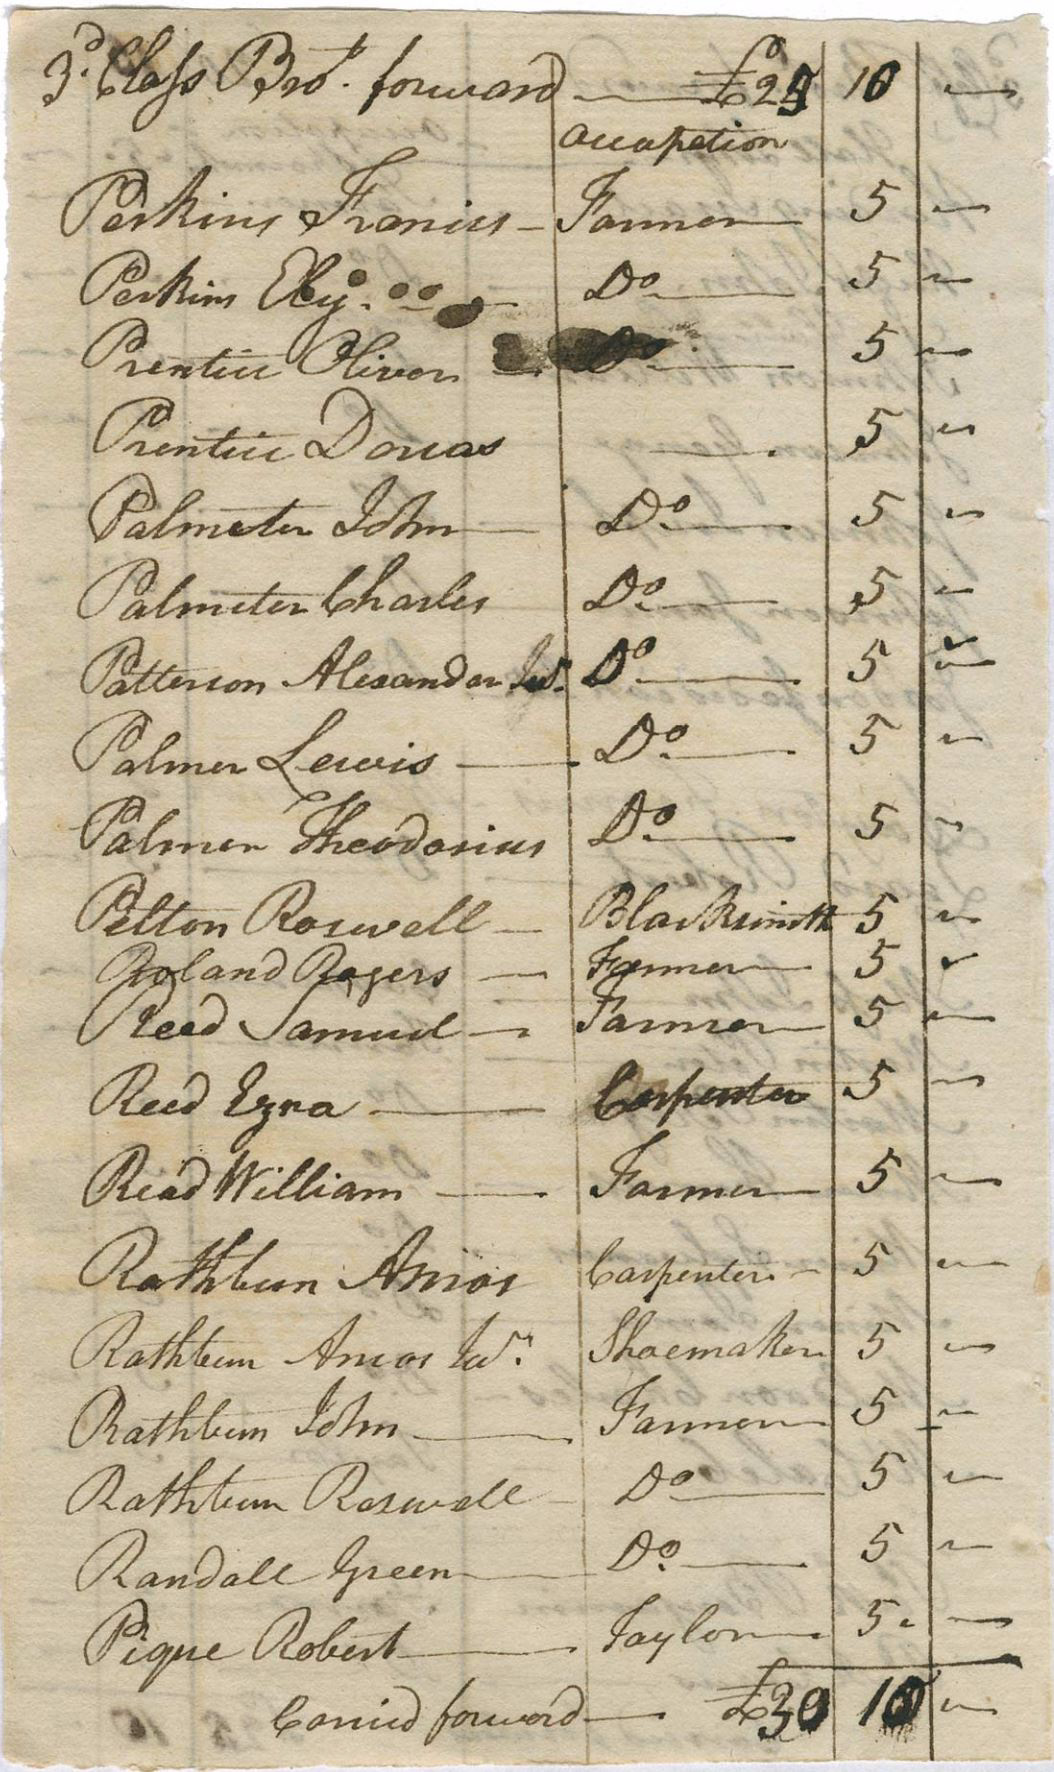 3.d Class Bro.t forward — £25 10 —
Occupation
Perkins Francis — Farmer — 5 —
Perkins Do — 5 —
Prentice Oliver — Do — 5 —
Prentice Dorcas — 5 —
Palmeter John — Do — 5 —
Palmeter Charles Do — 5 —
Patterson Alexander Jur. Do — 5 —
Palmer Lewis — Do — 5 —
Palmer Theodosius Do — 5 —
Pelton Roswell — Blacksmith 5 —
Roland Rogers — Farmer — 5
Reed Samuel — Farmer — 5 —
Reed Ezra — Carpenter 5 —
Read William — Farmer — 5 —
Rathbun Amos Carpenter — 5 —
Rathbun Amos Jur. Shoemaker 5 —
Rathbun John — Farmer — 5 —
Rathbun Roswell — Do — 5 —
Randall Green — Do — 5 —
Pique Robert — Taylor — 5 —
Carried forward — £30 10 —